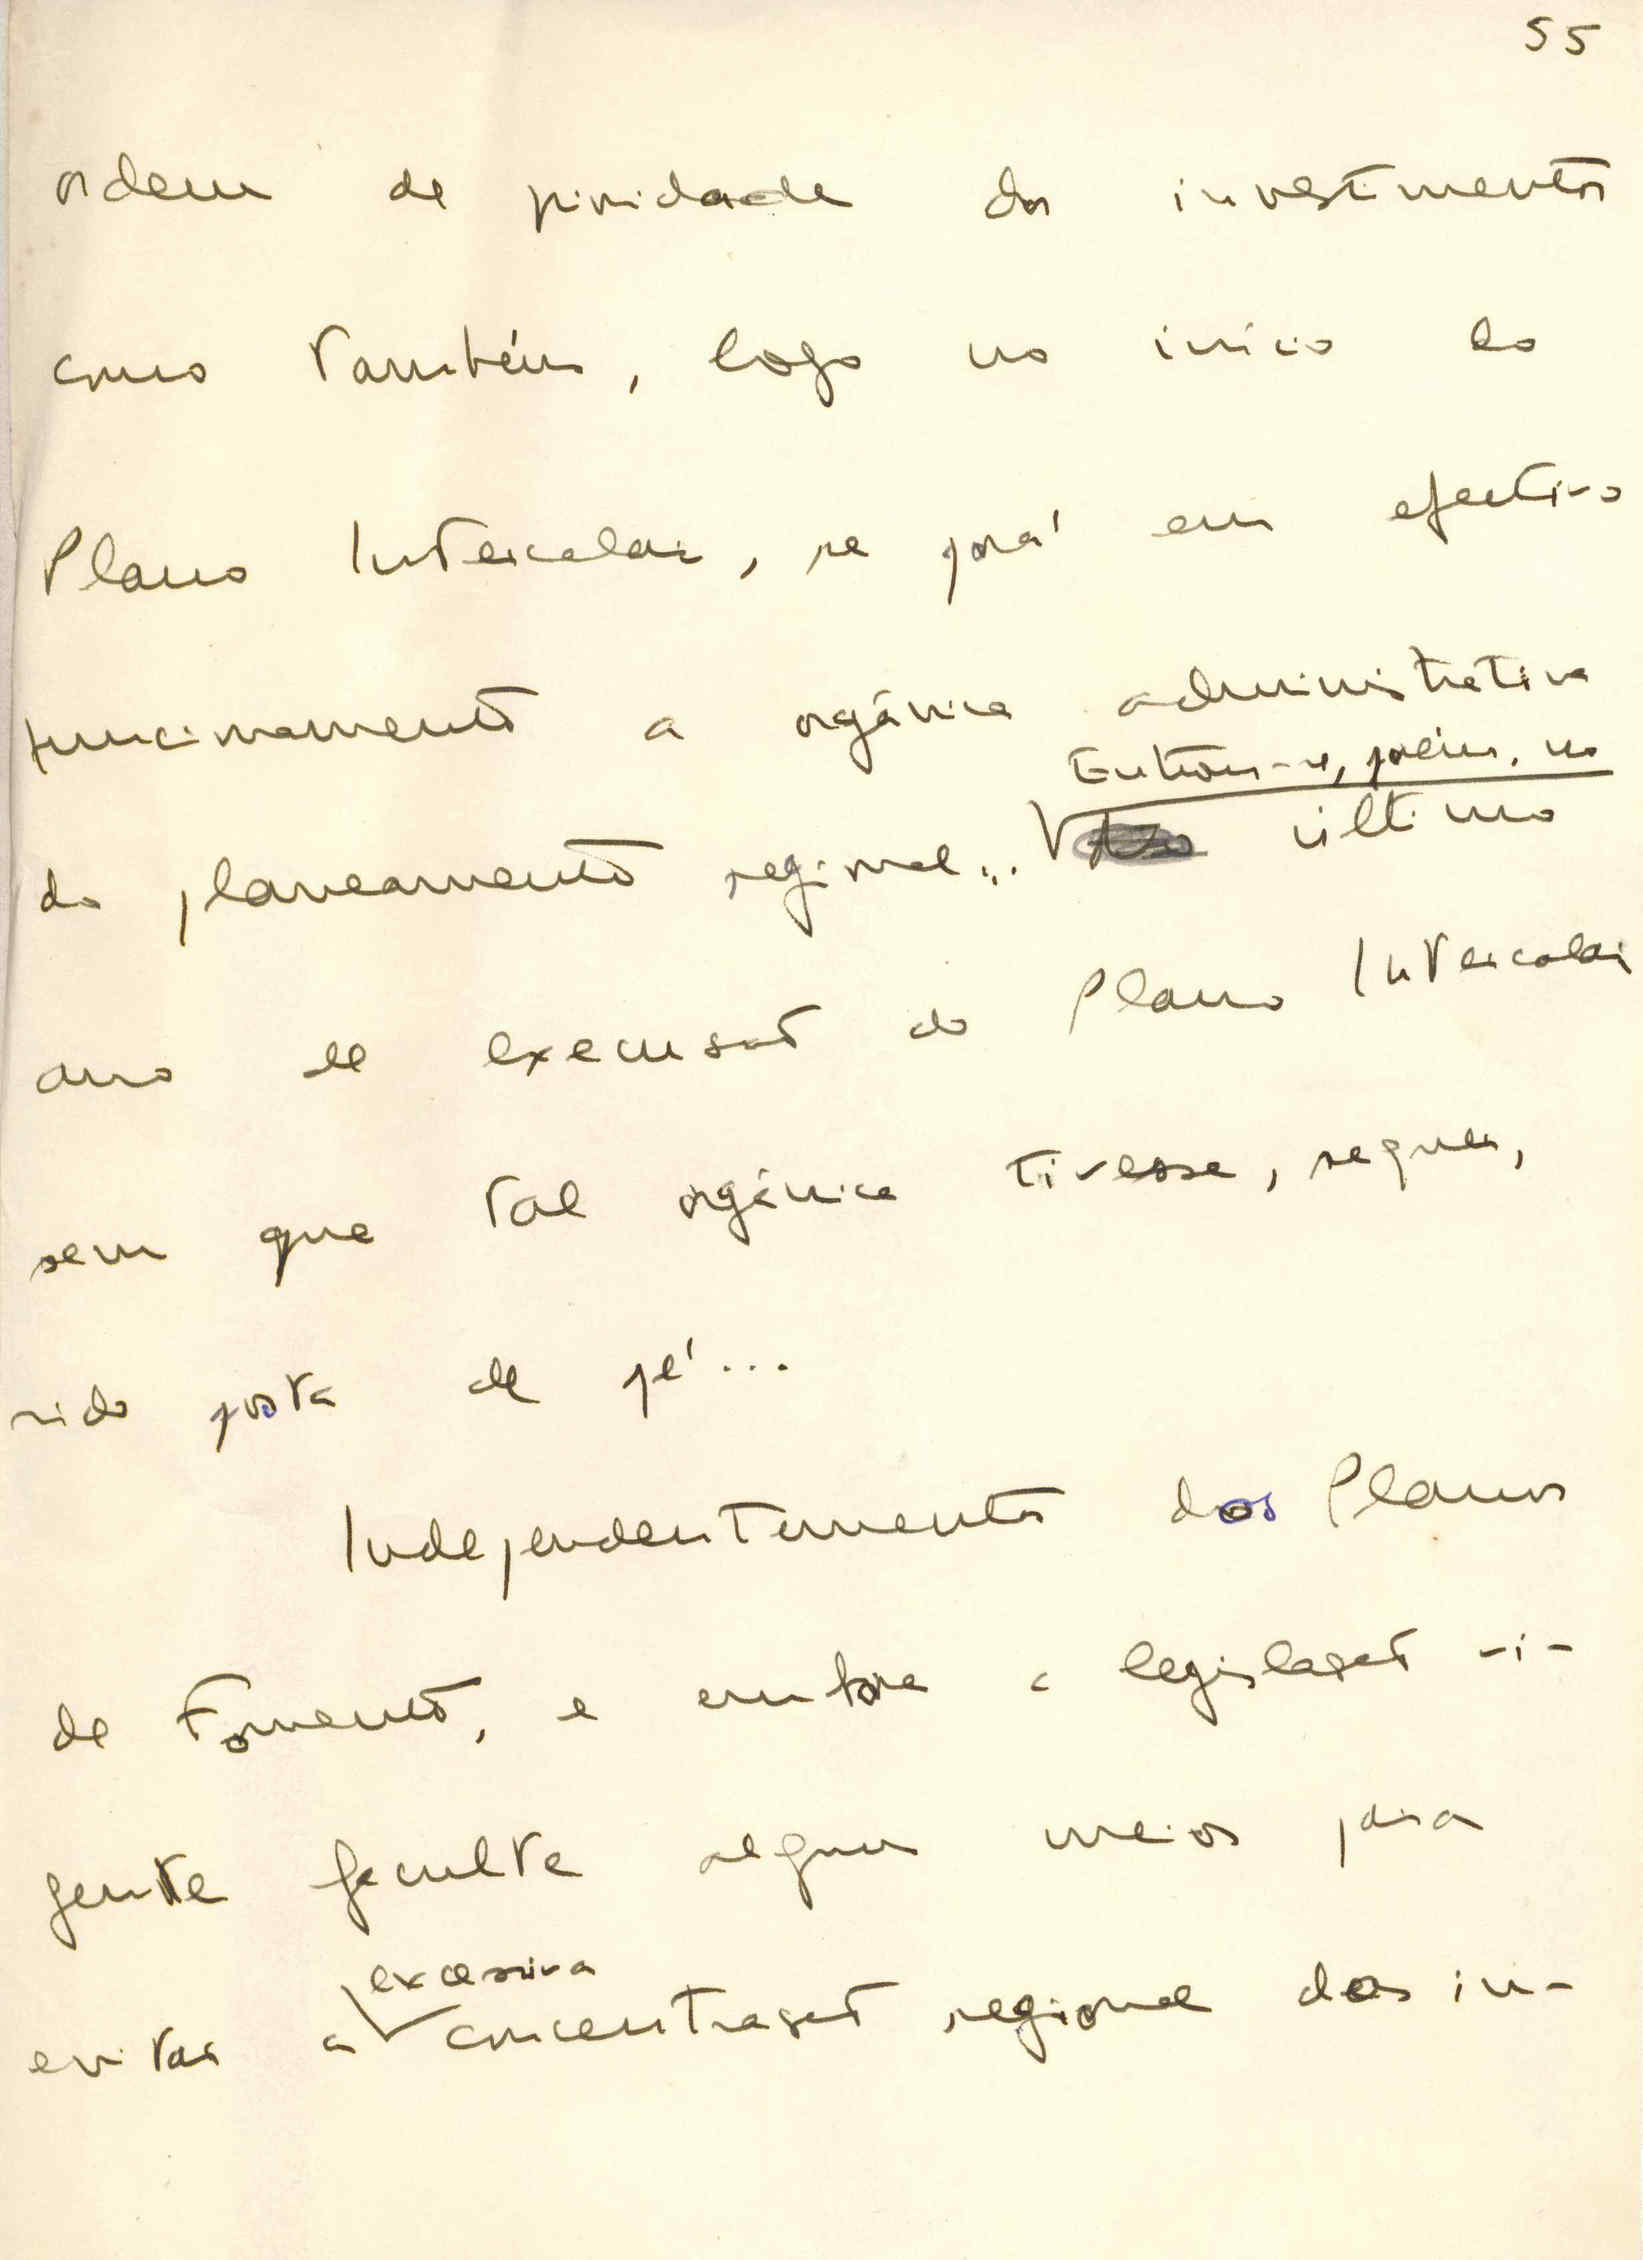 55
ordem de prioridade dos investimentos
como também, logo no início do
Plano Intercalar, se porá em efectivo
funcionamento a orgânica administrativa
do planeamento regional". Entrou-se, porém, no
último
ano de execução do Plano Intercalar
sem que tal orgânica tivesse, sequer,
sido posta de pé...
Independentemente dos Planos
de Fomento, e embora a legislação vi-
gente faculte alguns meios para
evitar a excessiva concentração regional das in-